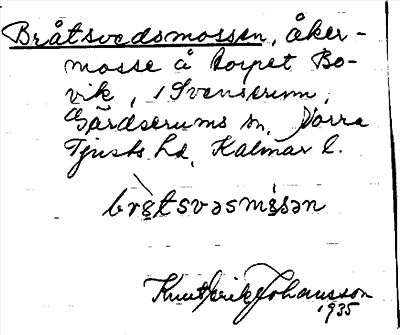 Bråtsvedsmossen, åker-
mosse å torpet Bo-
vik, i Svenserum,
Gärdserums sn, Norra
Tjusts hd, Kalmar l.
brɛtsvəsmɛsən
Knut Erik Johansson
1935